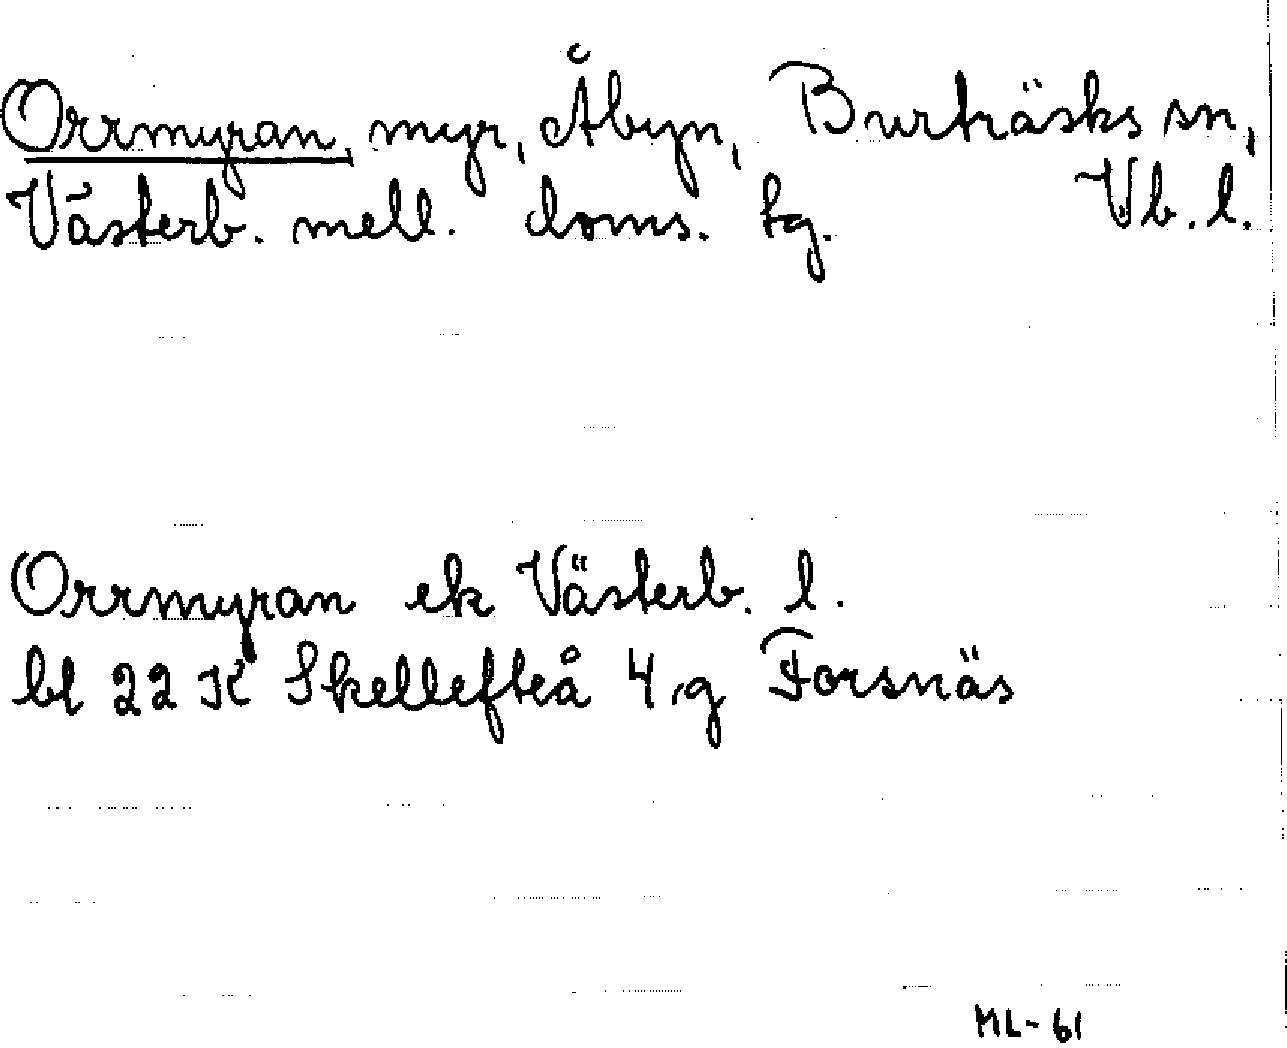 Orrmyran, myr, Åbyn, Burträsks sn,
Västerb. mell. doms. tg. Vb. l.
Orrmyran ek Västerb. l.
bl 22 K Skellefteå 4 g Forsnäs
ML-61